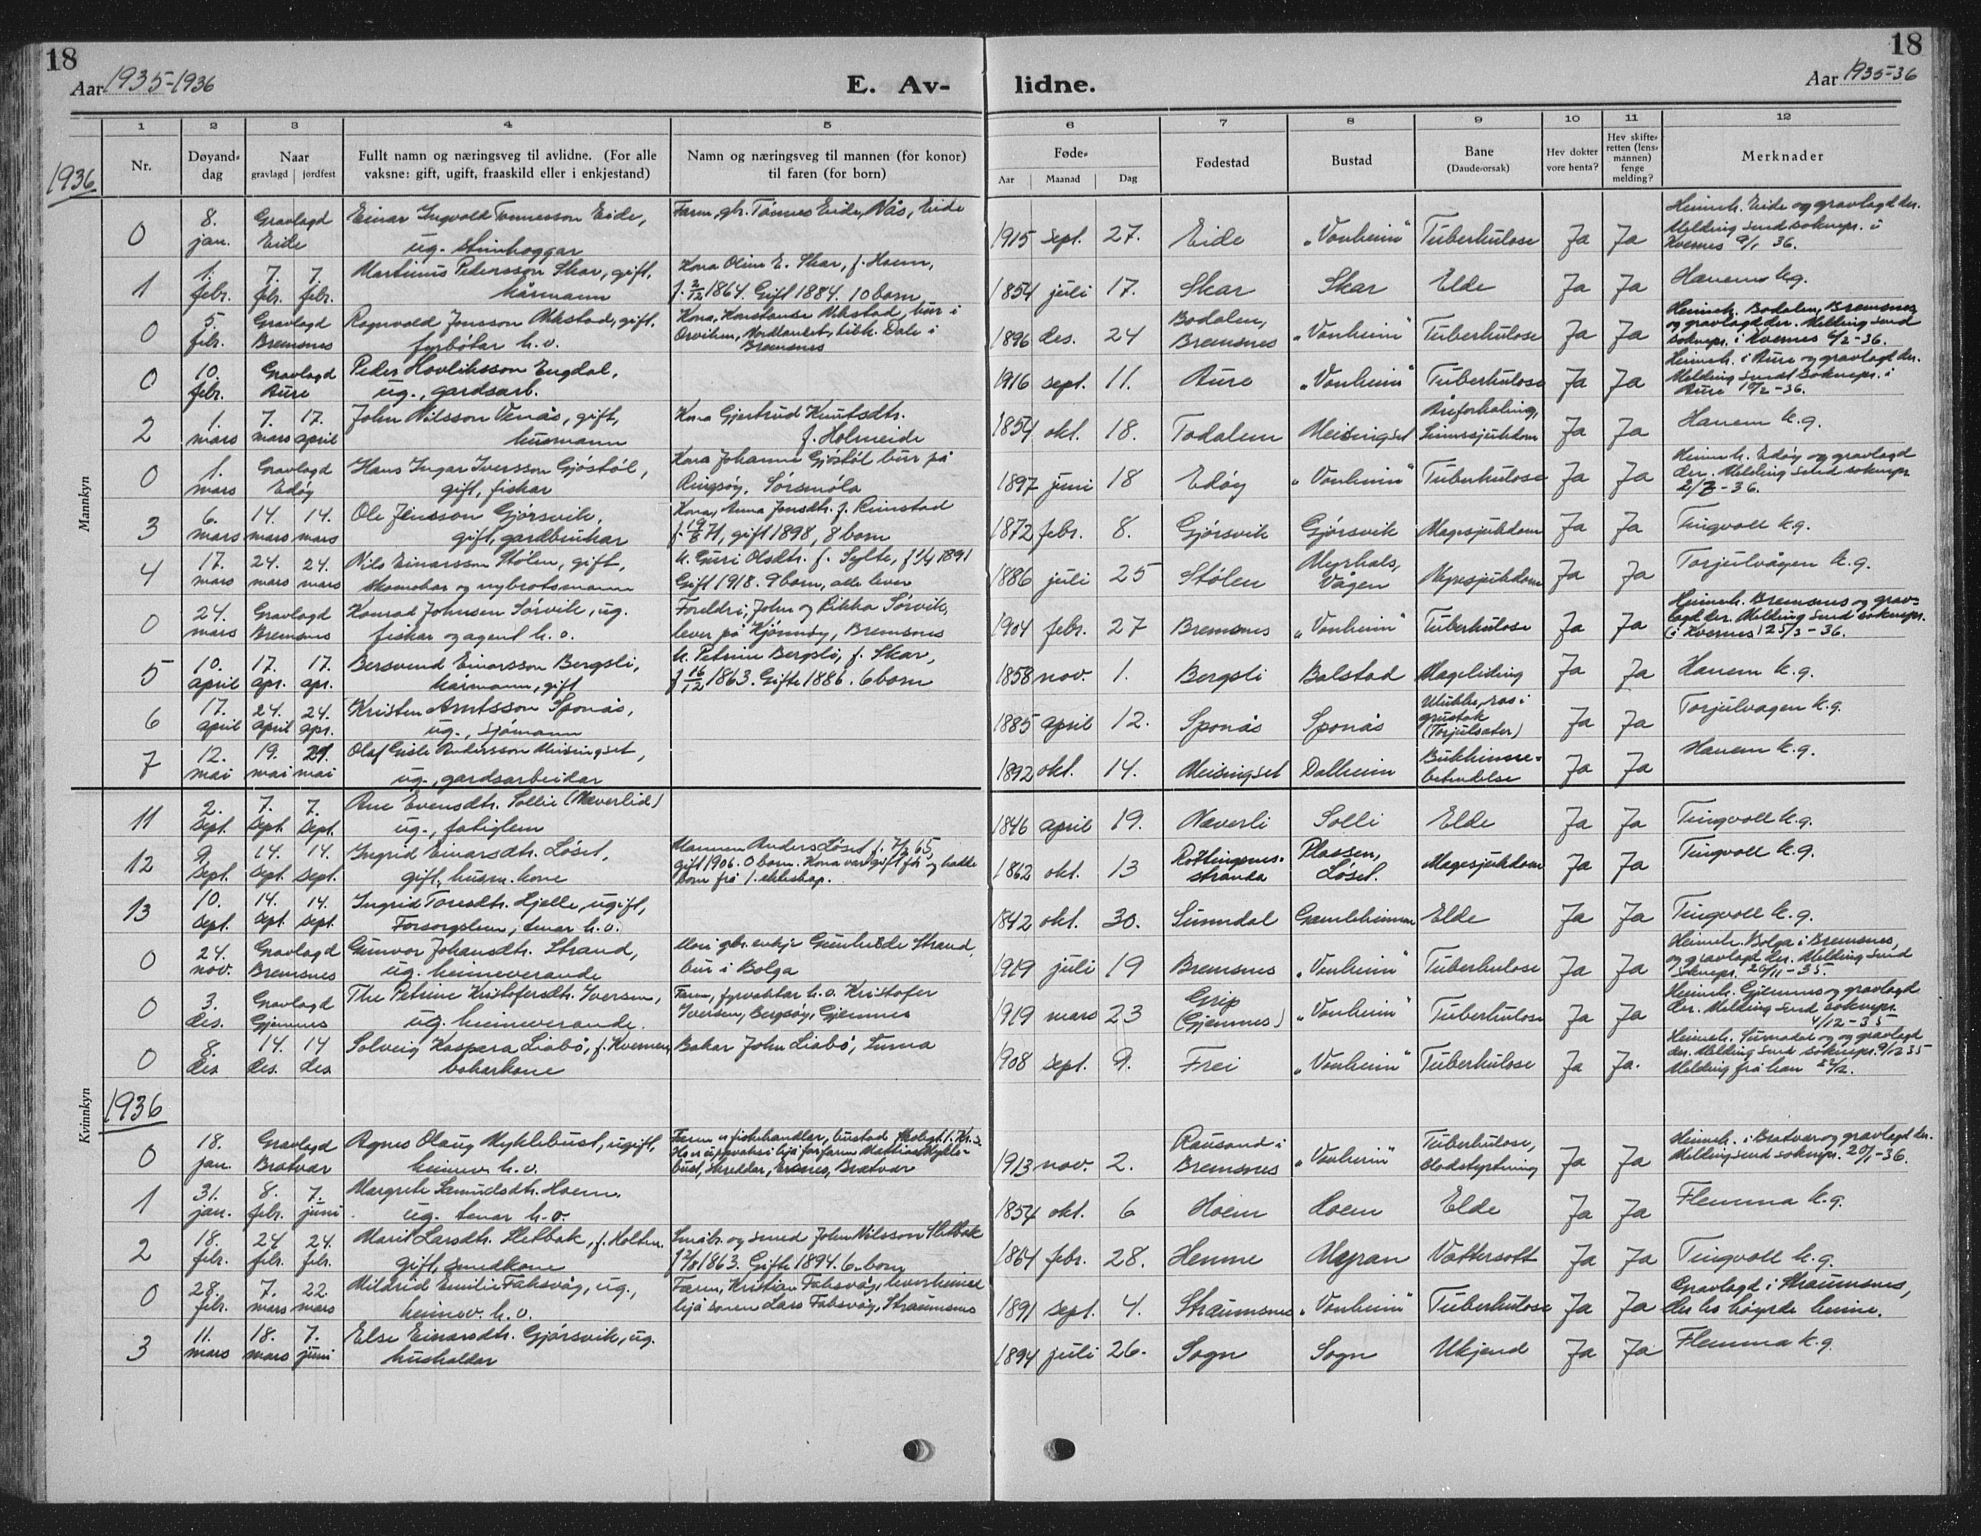 18
18
Aar 1935-1936
E. Av-
lidne.
Aar 1935-36
1 2 3 4 5 6 7 8 9 10 11 12
Nr.
Døyand-
dag
Naar
gravlagd jordfest
Fullt namn og næringsveg til avlidne. (For alle
vaksne: gift, ugift, fraaskild eller i enkjestand)
Namn og næringsveg til mannen (for konor)
til faren (for born)
Føde-
Aar Maanad Dag
Fødestad
Bustad
Bane
(Daude-orsak)
Hev dokter
vore henta?
Hev skifte-
retten (lens-
mannen)
fenge
melding?
Merknader
1936
Mannkyn
0 8. jan. Gravlagd Eide Einar Ingvald Tønnesson Eide, ug. steinhoggar Farm, gbr. Tønnes Eide, Nås, Eide 1915 sept. 27. Eide "Vonheim" Tuberkulose Ja Ja Heimeh. Eide og gravlagd der. Melding send soknepr. i Kvernes 9/1 36.
1 1. febr. 7. febr. 7. febr. Martinus Pedersson Skar, gift, kårmann Kona Oline E. Skar, f. Hoem, f. 2/12 1864. Gift 1884. 10 born 1854 juli 17. Skar Skar Elde Ja Ja Hanem k.g.
0 5 febr. Gravlagd Bremsnes Ragnvald Jonsson Ulkstad, gift, fyrbøter h.v. Kona, Konstanse Ulkstad, bur i Orviken, Nordlandet, tidl. Dale i Bremsnes 1896 des. 24 Bodalen, Bremsnes "Vonheim" Tuberkulose Ja Ja Heimeh. Bodalen, Bremsnes og gravlagd der. Melding send soknepr. i Kvernes 6/2-36.
0 10. febr. Gravlagd Aure Peder Havliksson Engdal, ug., gardsarb. 1916 sept. 11. Aure "Vonheim" Tuberkulose Ja Ja Heimeh. i Aure og gravlagd der. Melding sendt soknepr. i Aure 10/2-36.
2 1. mars 7. mars 17. april John Nilsson Venås, gift, husmann Kona Gjertrud Knutsdtr. f. Holmeide 1854 okt. 18. Todalen Meisingset Åreforkalking, Sinnssjukdom Ja Ja Hanem k.g.
0 1. mars Gravlagd Edøy Hans Ingar Iversson Gjøstøl, gift, fiskar Kona Johanna Gjøstøl bur på Ringsøy, Sørsmøla 1897 juni 18 Edøy "Vonheim" Tuberkulose Ja Ja Heimeh. Edøy og gravlagd der. Melding send soknepr. 2/3-36.
3 6. mars 14. mars 14. mars Ole Jensson Gjørsvik, gift, gardbrukar Kona, Anna Jonsdtr. f. Rimstad f. 19/8 71, gift 1898, 8 born 1872 febr. 8. Gjørsvik Gjørsvik Magesjukdom Ja Ja Tingvoll k.g.
4 17. mars 24. mars 24. mars Nils Einarsson Stølen, gift, skomakar og nybrotsmann K. Guri Olsdtr. f. Sylte, f 1/4 1891 Gift 1918. 9 born, alle lever 1886 juli 25 Stølen Myrhals, Vågen Nyresjukdom Ja Ja Torjulvågen k.g.
0 24. mars Gravlagd Bremsnes Konrad Johnsen Sørvik, ug. fiskar og agent h.v. Foreldri, John og Rikka Sørvik, lever på Kjønnøy, Bremsnes 1904 febr. 27 Bremsnes "Vonheim" Tuberkulose Ja Ja Heimeh. Bremsnes og gravlagd der. Melding send soknepr. (i Kvernes) 25/3-36.
5 10. april 17. apr. 17. apr. Bersvend Einarsson Bergsli, kårmann, gift K. Petrine Bergsli, f. Skar, f 16/12 1863. Gifte 1886. 6 born 1858 nov. 1. Bergsli Balstad Mageliding Ja Ja Hanem k.g.
6 17. april 24. april 24. apr. Kristen Arntsson Sponås, ug., sjømann 1885 april 12. Sponås Sponås Ulukke, ras i grustak (Torjulsæter) Ja Ja Torjulvågen k.g.
7 12. mai 19. mai 24. mai Olaf Gisle Andersson Meisingset, ug., gardsarbeidar 1892 okt. 14. Meisingset Dalheim Bukhinne-betendelse Ja Ja Hanem k.g.
Kvinnkyn
11 2. sept. 7. sept. 7. sept. Ane Evensdtr. Sollie (Neverlid) ug., fatiglem 1846 april 19. Neverli Solli Elde Ja Ja Tingvoll k.g.
12 9 sept. 14. sept. 14. sept. Ingrid Einarsdtr. Løset, gift, husm. kone Mannen Anders Løset f. 7/2 65, gift 1906. 0 born. Kona var gift før og hadde born frå 1. ekteskap. 1862 okt. 13 Rottingsnes-stranda Plassen, Løset. Magesjukdom Ja Ja Tingvoll k.g.
13 10. sept. 14. sept 14. sept. Ingrid Toresdtr. Hjelle, ugift, Forsorgslem, tenar h.v. 1842 okt. 30. Sunndal Gamleheimen Elde Ja Ja Tingvoll k.g.
0 24. nov. Gravlagd Bremsnes Gunvor Johansdtr. Strand, ug. heimeverande Mori gbr. enkje Gunhilde Strand, bur i Bolga 1919 juli 19 Bremsnes "Vonheim" Tuberkulose Ja Ja Heimeh. Bolga i Bremsnes, og gravlagd der. Melding send soknepr. 26/11-35.
0 3. des. Gravlagd Gjemnes Thee Petrine Kristofersdtr. Iversen, ug. heimeverande. Farm, fyrvaktar h.v. Kristofer Iversen, Bergsøy, Gjemnes 1919 mars 23 Grip (Gjemnes) "Vonheim" Tuberkulose Ja Ja Heimeh. Gjemnes og gravlagd der. Melding send soknepr. 4/12-35
0 8. des 14. des. 14 des Solveig Kaspara Liabø, f. Kvernen, bakarkone Bakar John Liabø, Surna 1908 sept. 9. Frei "Vonheim" Tuberkulose Ja Ja. Heimeh. Surnadal og gravlagd der. Melding send soknepr. 9/12 35 Melding frå han 22/12.
1936
0 18. jan. Gravlagd Bratvær Agnes Olaug Myklebust, ugift, heimev. h.v. Farm er fiskehandlar, bustad 1913 nov. 2. Rausand i Bremsnes "Vonheim" Tuberkulose, blodstyrtning Ja Ja Heimeh. i Bratvær og gravlagd der. Melding send soknepr. 20/1-36.
1 31. jan. 8. febr. 7. juni Margrete Samulsdtr. Hoem. ug. tenar h.v. 1854 okt. 6 Hoem Hoem Elde Ja Ja Flemma k.g.
2 18. febr. 24 febr. 24. febr. Marit Larsdtr. Sletbak, f. Holten gift, smedkone Småbr. og smed John Nilsson Sletbak 1863. Gifte 1894. 6 born 1864 febr. 28. Henme Myran Vattersott Ja Ja Tingvoll k.g.
0 28. febr. 7. mars 22 mars Mildrid Emilie Fahsvåg, ug., heimev. h.v. Farm, Kristian Fahsvåg, lever heime hjå sonen Lars Fahsvåg, Straumsnes 1891 sept. 4. Straumsnes "Vonheim" Tuberkulose Ja Ja Gravlagd i Straumsnes, der ho høyrde heime.
3 11. mars 18. mars 7. juni Else Einarsdtr. Gjørsvik, ug. hushaldar 1894 juli 26. Sogn Sogn Ukjend Ja Ja Flemma k.g.